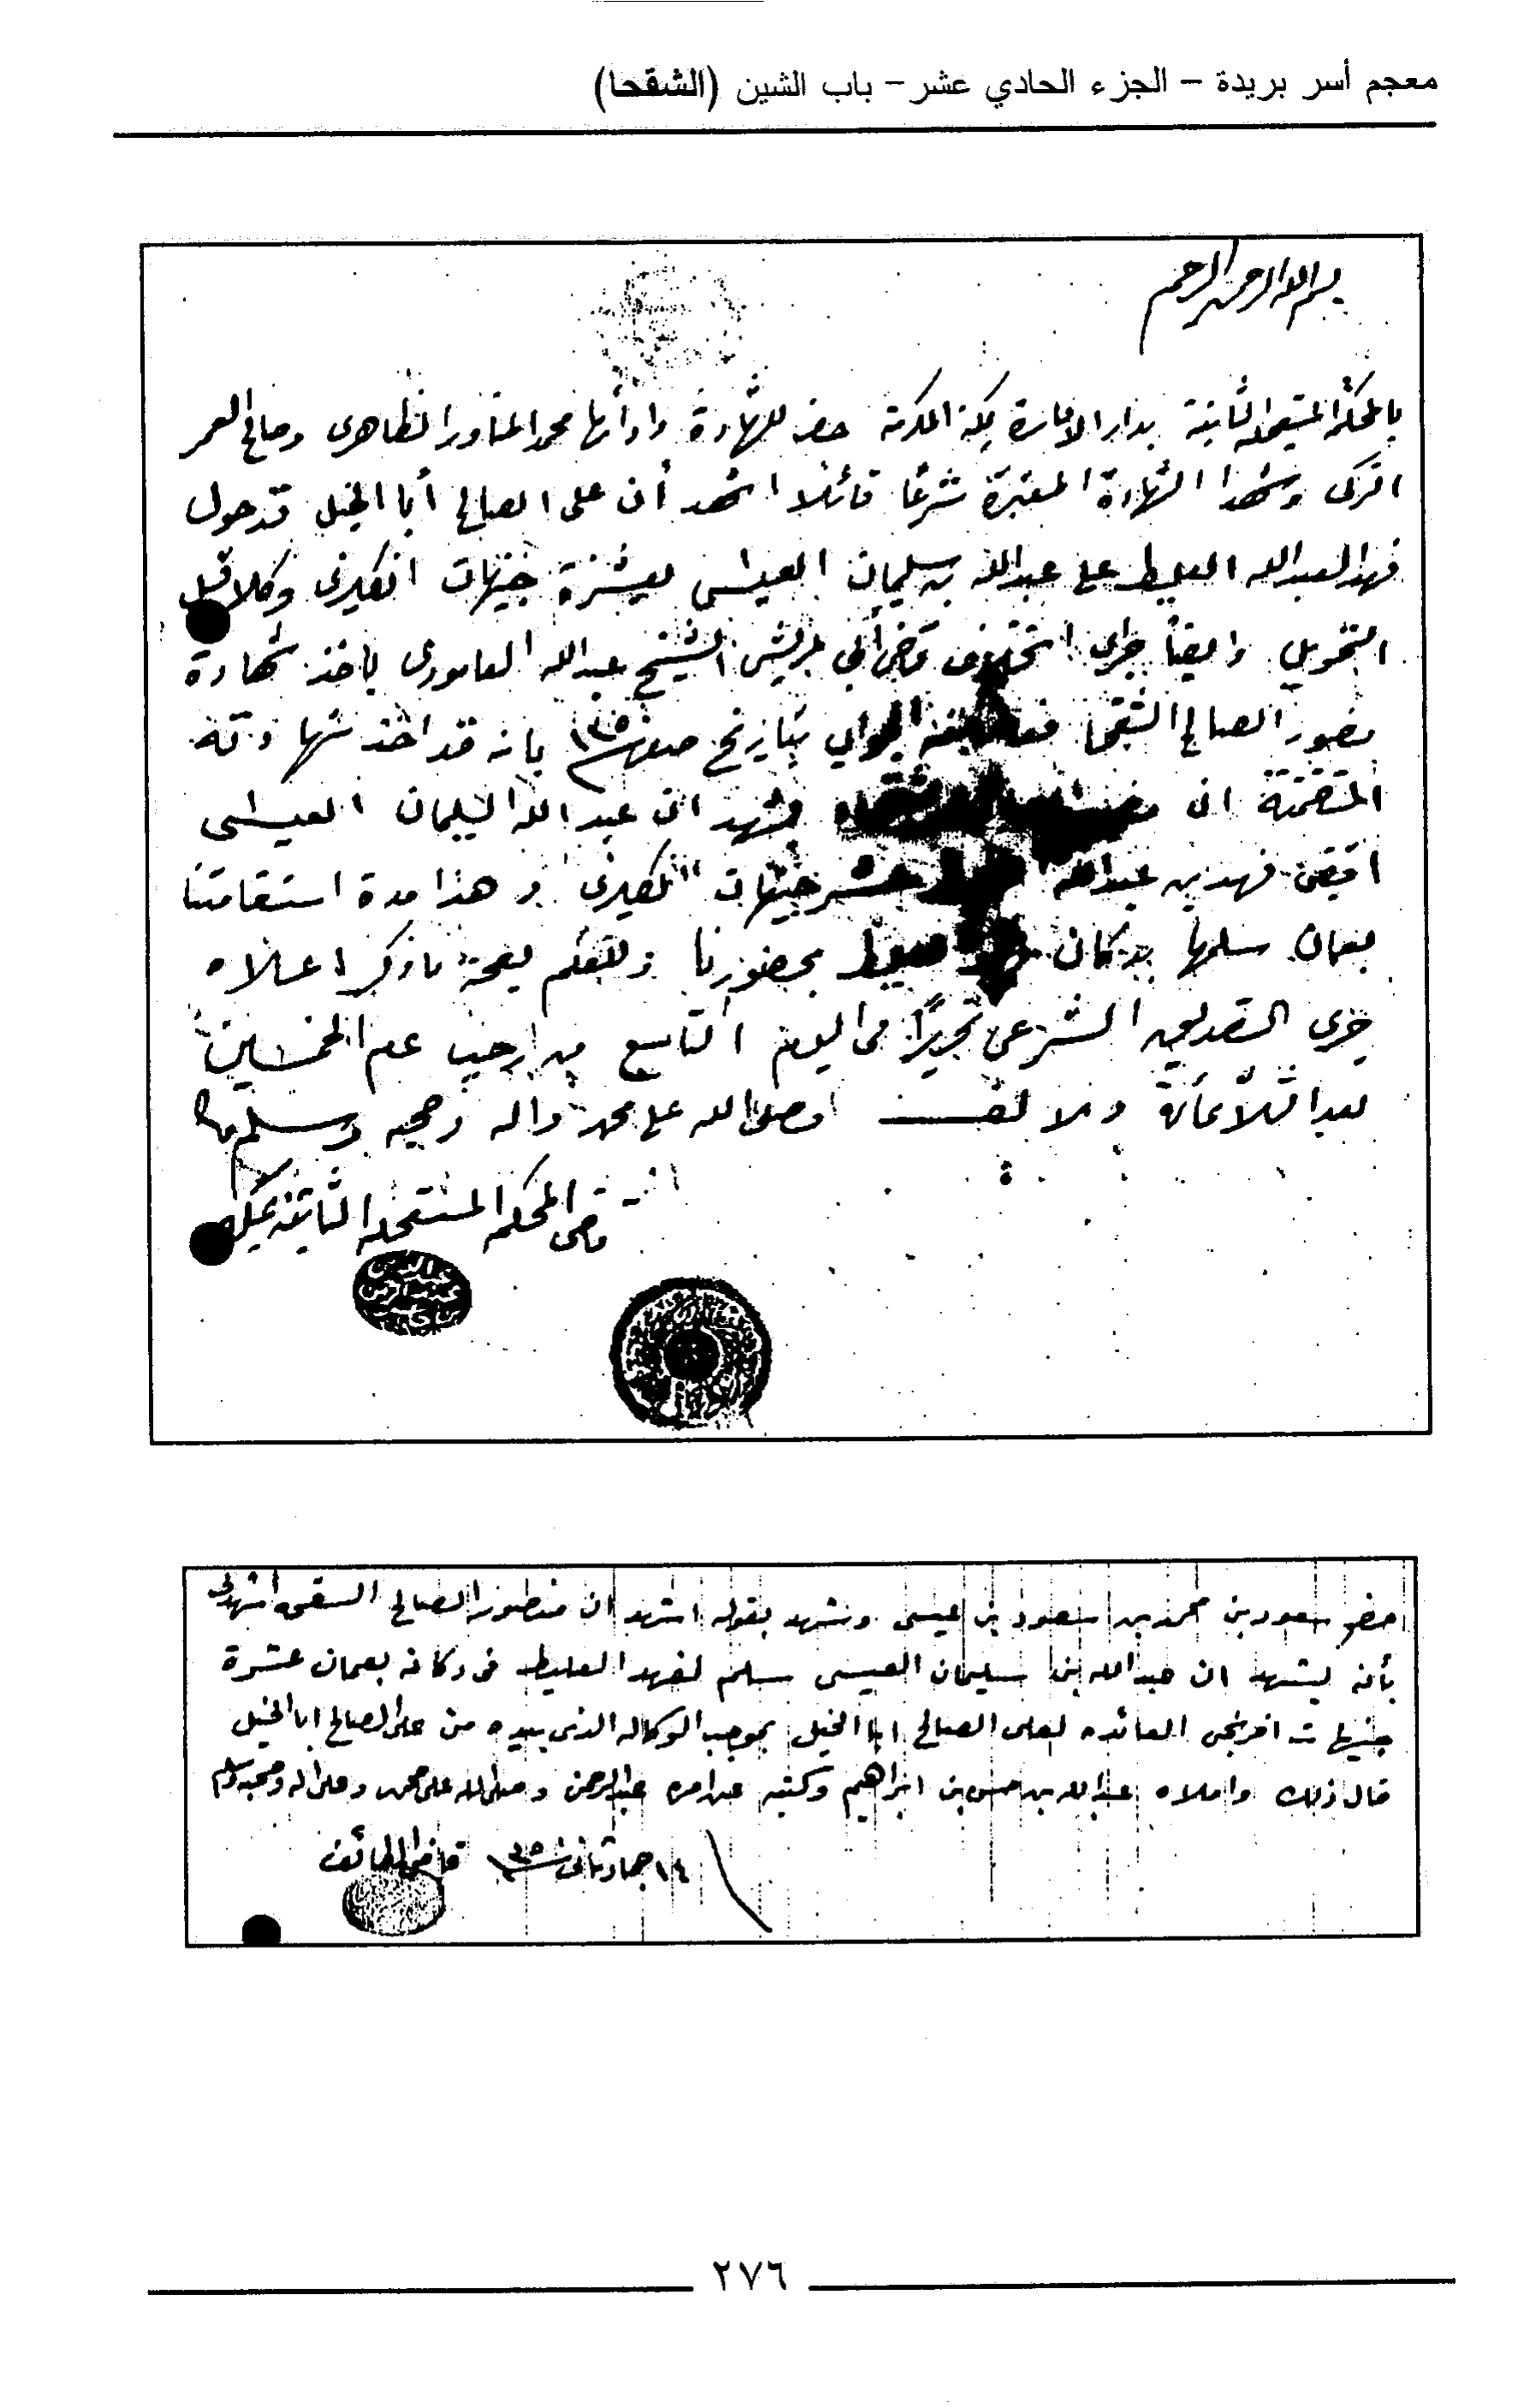 معجم أسر بريدة – الجزء الحادي عشر – باب الشين (الشقحا)
بسم الله الرحمن الرحيم
بالمحكمة المستعجلة الثانية بدار الامارة بمكة المكرمة حضر للشهادة وادائها محمد الظاهرى وصالح العمر
التركى وشهدا الشهادة المعتبرة شرعًا قائلا اشهد أن على الصالح أبا الخيل قد حول
فهد العبدالله العليط على عبدالله بن سليمان العيسى بعشرة جنيهات انكليزى وكلا قبل
التحويل وايضًا جرى قاضي الشيخ عبدالله العامودى باخذ شهادة
منصور الصالح الشقحا الجوابي بتاريخ صفر ١٣٥٠ بانه قد اخذ شهادته
المتضمنة ان يشهد ان عبدالله السليمان العيسى
فهد بن عبدالله عشر جنيهات انكليزى وهذا مدة استقامتنا
بعمان سلمها بدكان بحضورنا وللعلم بصحة ماذكر اعلاه
جرى التصديق الشرعى تحريرًا فى اليوم التاسع من رجب عام الخمسين
بعد الثلاثمائة والالف وصلى الله على محمد واله وصحبه وسلم
قاضى المحكمة المستعجلة الثانية بمكة
حضر سعود بن محمد بن سعود بن عيسى وشهد بقوله اشهد ان منصور الصالح السقحى اشهدنى
بأنه يشهد ان عبدالله بن سليمان العيسى سلم لفهد العليط فى دكانه بعمان عشرة
جنيهات افرنجى العائده لعلى الصالح ابا الخيل بموجب الوكاله الذى بيده من على الصالح ابا الخيل
قال ذلك واملاه عبدالله بن حسن بن ابراهيم وكتبه عن امره عبدالرحمن وصلى الله على محمد وعلى اله وصحبه وسلم
١٤ جماد ثانى ١٣٥٠ قاضى الطائف
٢٧٦